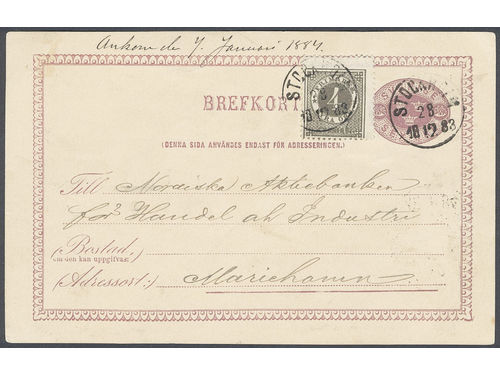 Ankom de 7. Januari 1884.
BREFKORT
STOCKHOLM
28
12
1883
(DENNA SIDA ANVÄNDES ENDAST FÖR ADRESSERINGEN.)
Till Nordiska Aktiebanken
för Handel och Industri
(Bostad,
om den kan uppgifvas:)
(Adressort:) Mariehamn